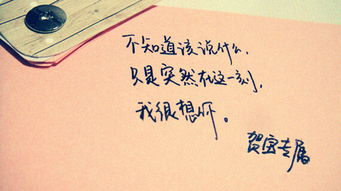 不知道该说什么.
只是突然在这一刻,
我很想你。
贺宝专属